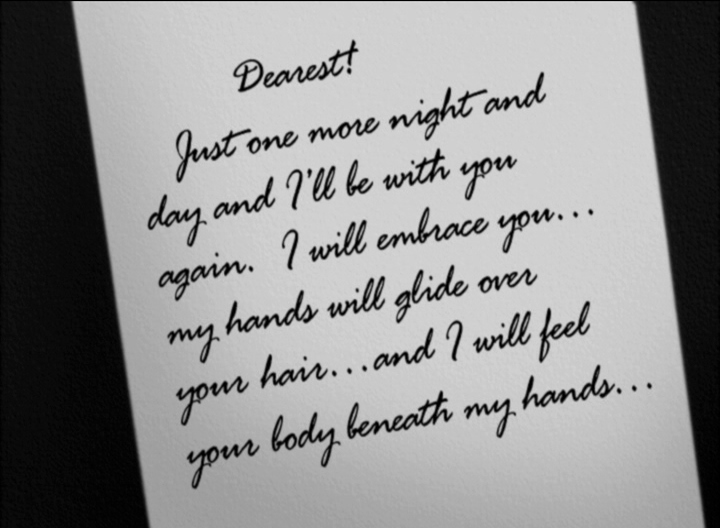 Dearest!
Just one more night and
day and I'll be with you
again. I will embrace you...
my hands will glide over
your hair...and I will feel
your body beneath my hands...